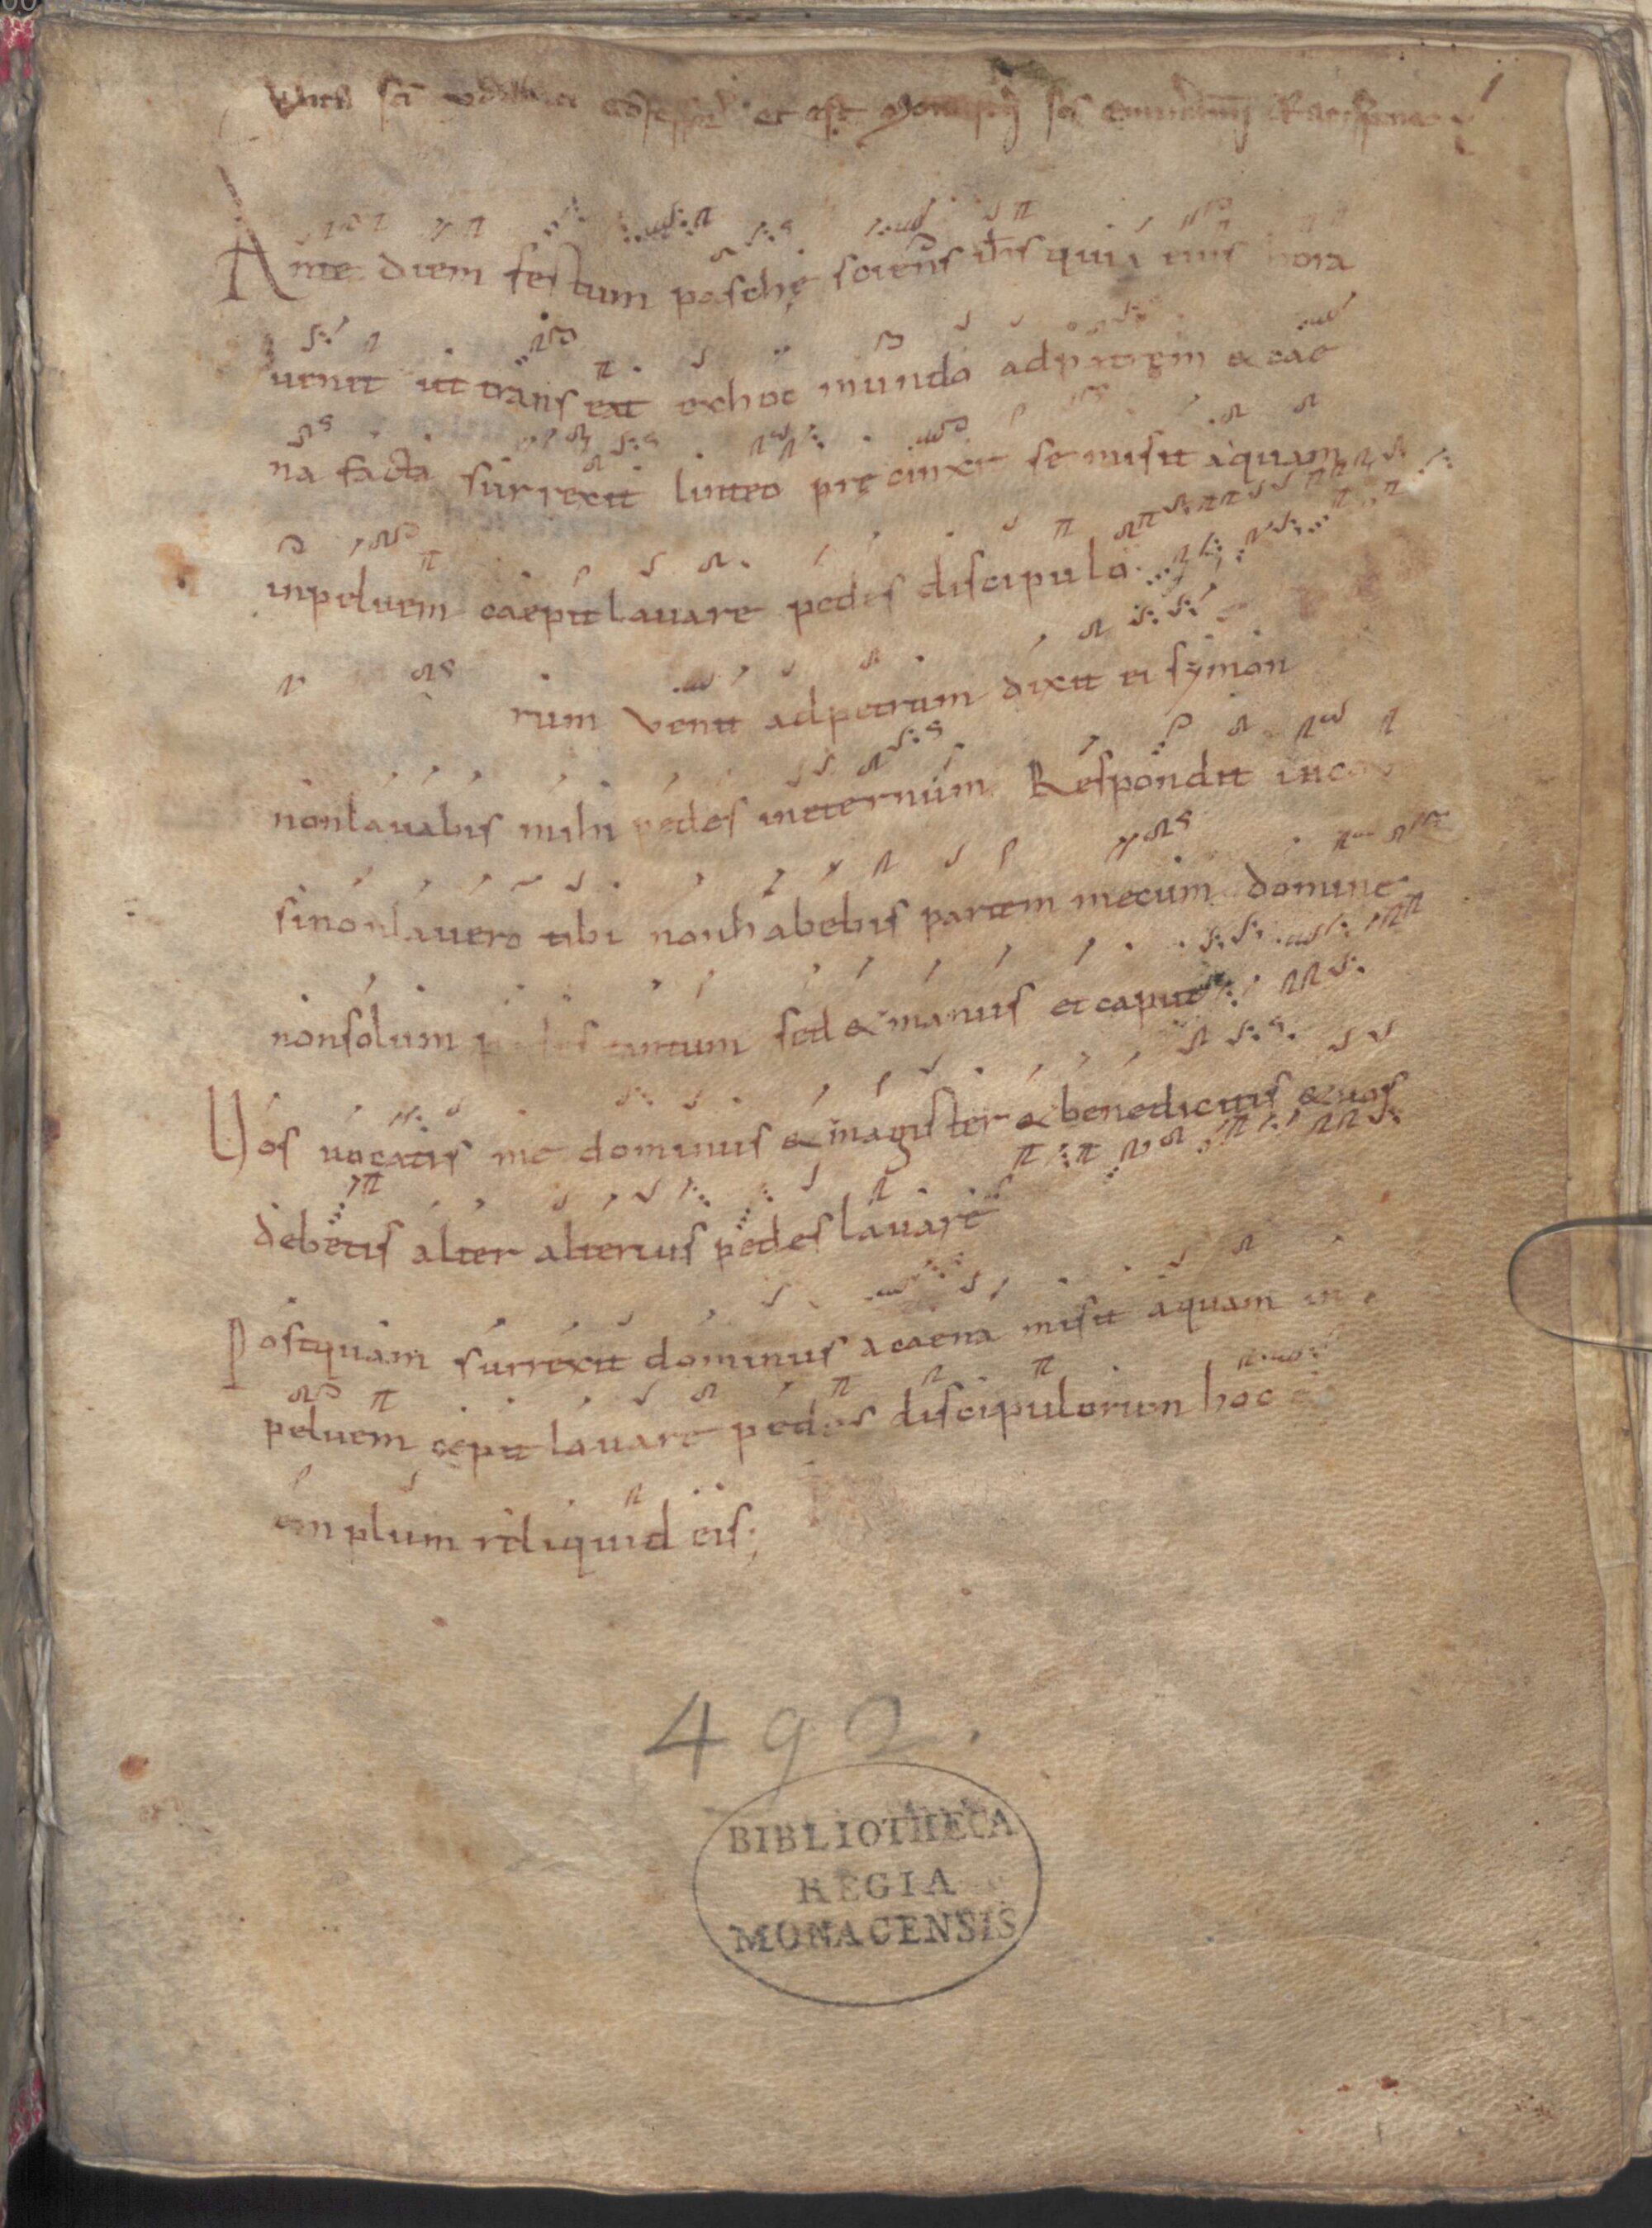 sci et est sci Emmerammi
Ante diem festum paschę sciens ihs quia eius hora
uenit ut transeat exhoc mundo adpatrem & cae
na facta surrexit linteo pręcinxit se misit aquam
inpeluem caepit lauare pedes discipulo
rum venit adpetrum dixit ei symon
nonlauabis mihi pedes ineternum Respondit
sinonlauero tibi nonhabebis partem mecum domine
nonsolum pedes tantum sed & manus et caput
Uos uocatis me dominus & magister & benedicitis & uos
debetis alter alterius pedes lauare
Postquam surrexit dominus acaena misit aquam in
peluem cepit lauare pedes discipulorum hoc
emplum reliquid eis;
492.
BIBLIOTHECA
REGIA
MONACENSIS